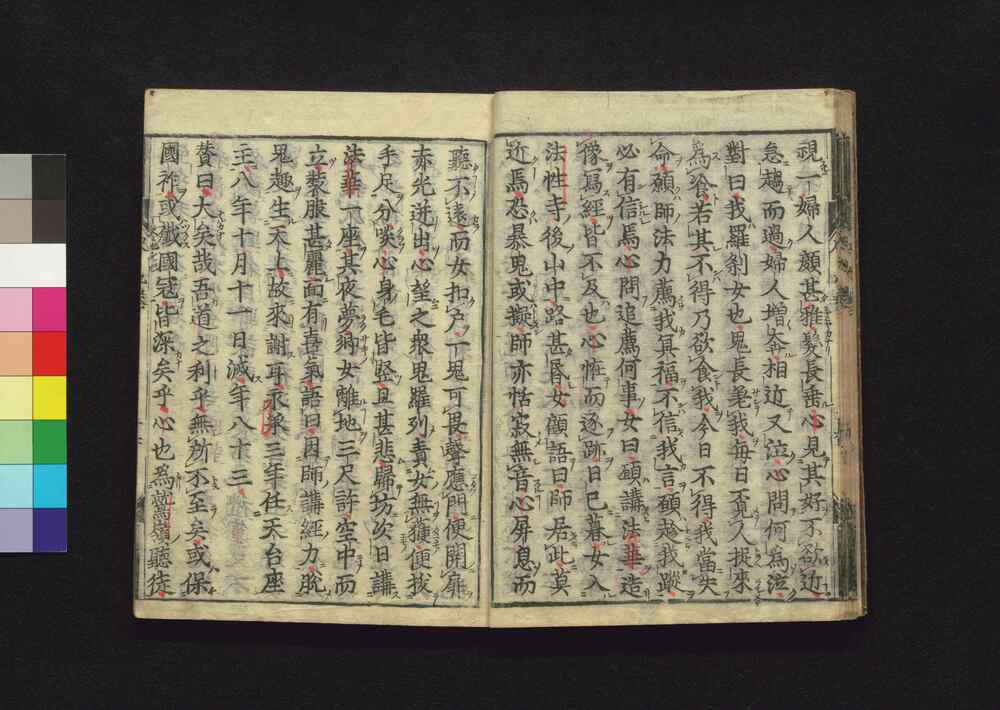 視一婦人顏甚雅髮長垂心見其好不欲近
急趨而過婦人增奔相近又泣心問何為泣
對曰我羅剎女也鬼長毫我每日丕人捉來
為飡若其不得乃欲食我今日不得我當失
命願師法力薦我冥福不信我言願趁我蹤
必有信焉心問追薦何事女曰願講法華造
像寫經皆不及也心怪而逐跡日已暮女入
法性寺後山中路甚昏女顧語曰師居此莫
近焉恐暴鬼或擬師亦恬寂無音心屏息而
聽不遠而女扣戶一鬼可畏聲應門便開扉
赤光迸出心望之衆鬼羅列責女無獲便拔
手足分啖心身毛皆竪且甚悲歸坊次日講
法華一座其夜夢卿女離地三尺許空中而
立裝服甚麗面有喜氣語曰因師講經力脫
鬼趣生天上故來謝耳永承三年任天台座
主八年十月十一日滅年八十三
贊曰大矣哉吾道之利乎無所不至矣或保
國祚或殲國冦皆深矣乎心也為鷲嶺聽徒